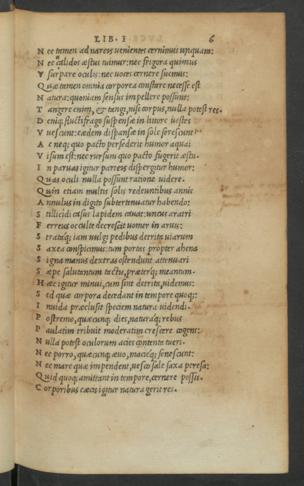 LIB. I 6
N ec tamen ad nareis venientes cernimus unquam:
N ec calidos æstus tuimur: nec frigora quimus
V surpare oculis: nec uoces cernere suemus:
Q uæ tamen omnia corporea constare necesse est
N atura: quoniam sensus impellere possunt:
T angere enim, et tangi, nisi corpus, nulla potest res.
D eniq; fluctifrago suspensæ in littore uestes
V uescunt: eædem dispansæ in sole serescunt:
A t neq; quo pacto persederit humor aquai
V isum est: nec rursum quo pacto fugerit æstu.
I n paruas igitur parteis dispergitur humor:
Q uas oculi nulla possunt ratione uidere.
Q uin etiam multis solis redeuntibus annis
A nnulus in digito subtertenuatur habendo:
S tillicidi casus lapidem cauat: uncus aratri
F erreus occulte decrescit uomer in aruis:
S trataq; iam uulgi pedibus detrita uiarum
S axea conspicimus: tum portas propter ahena
S igna manus dextras ostendunt attenuari
S æpe salutantum tactu, præterq; meantum.
H æc igitur minui, cum sint detrita, uidemus:
S ed quæ corpora decedant in tempore quoq;:
I nuida præclusit speciem natura uidendi.
P ostremo, quæcunq; dies, naturaq; rebus
P aulatim tribuit moderatim crescere cogens:
N ulla potest oculorum acies contenta tueri.
N ec porro, quæcunq; æuo, macieq; senescunt:
N ec mare quæ impendent, uesco sale saxa peresa:
Q uid quoq; amittant in tempore, cernere possis.
C orporibus cæcis igitur natura gerit res.